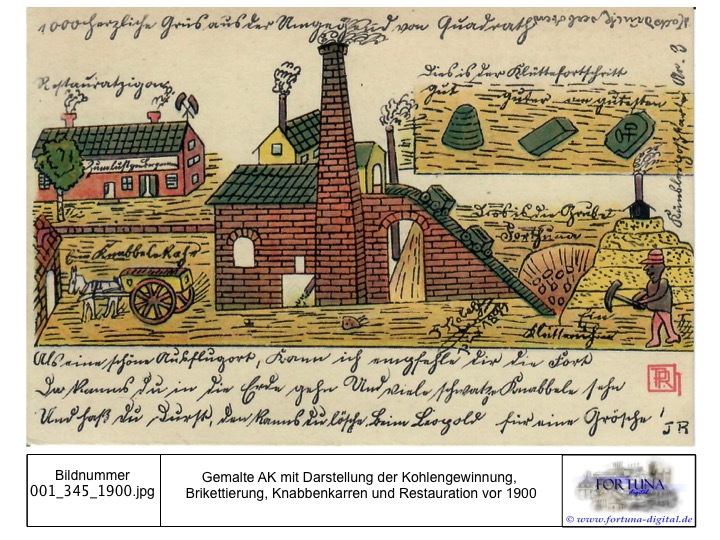 1000 herzliche Grüs aus der Umgegend von Quadrath
Restauratzigong
Dies is der Klüttefortschritt
Gut guter am gutesten
Zum lustgen bergman
Ein Knabbelskahr
Dies is die Grube
Forthuna
Ein
Klütterich
Als eine schöne Ausflugort, kann ich empfehle dir die Fort
Da kanns du in die Erde gehn Und viele schwatze Knabbele sehn
Und haß du Durst, den kanns du lösche, beim Leopold für eine Grösche!
JR
Bildnummer
001_345_1900.jpg
Gemalte AK mit Darstellung der Kohlengewinnung,
Brikettierung, Knabbenkarren und Restauration vor 1900
FORTUNA
digital
© www.fortuna-digital.de